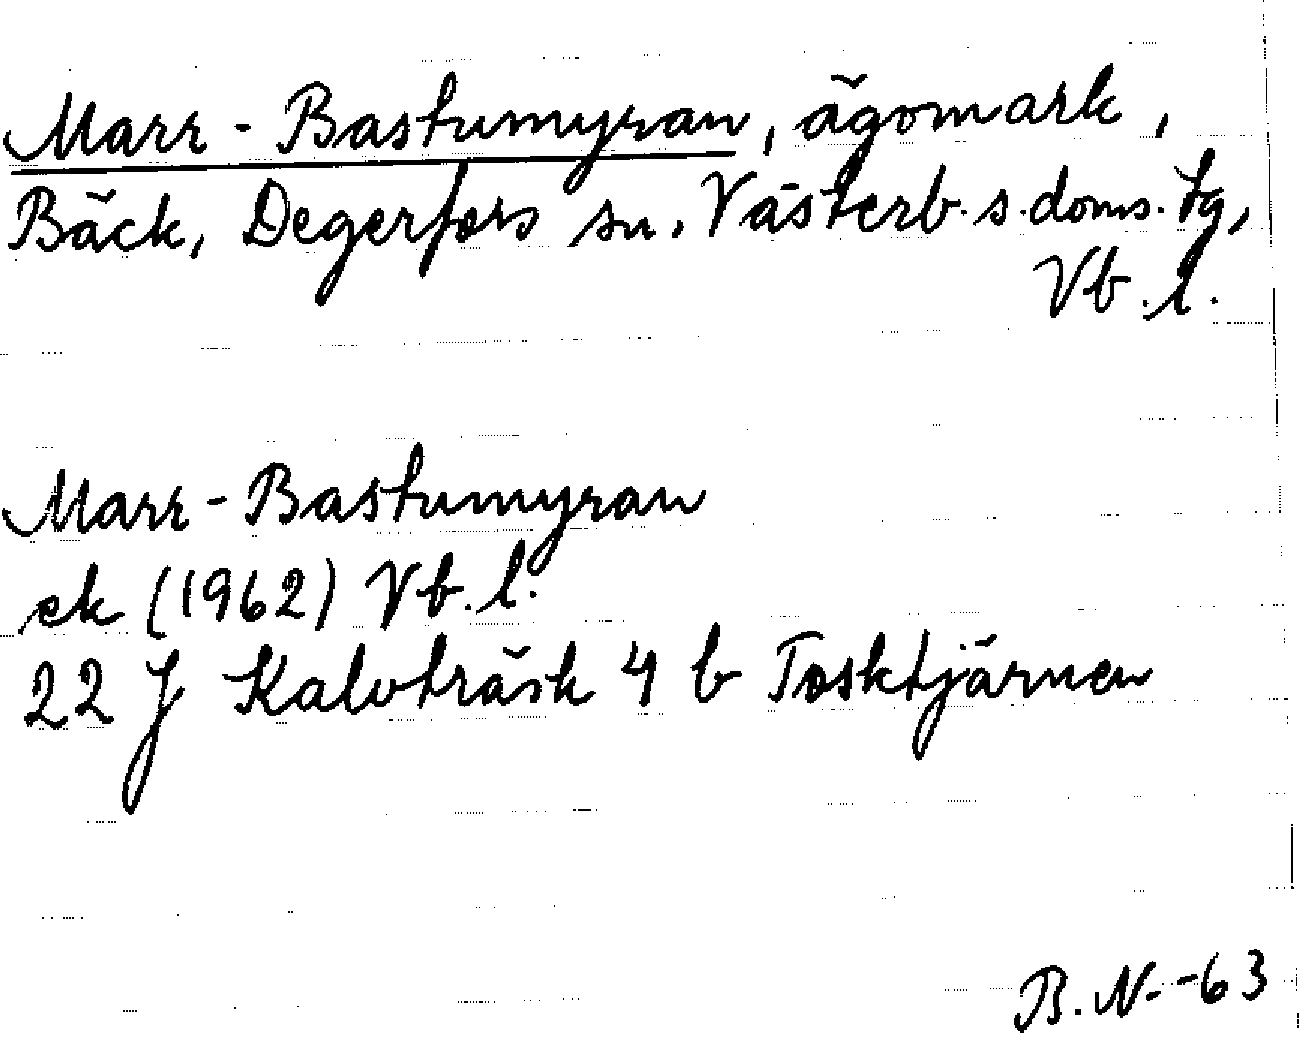 Marr-Bastumyran, ägomark,
Bäck, Degerfors sn. Västerb.s.doms.tg,
Vb.l.
Marr-Bastumyran
ek (1962) Vb.l.
22 J Kalvträsk 4 b Tosktjärnen
B.N.-63